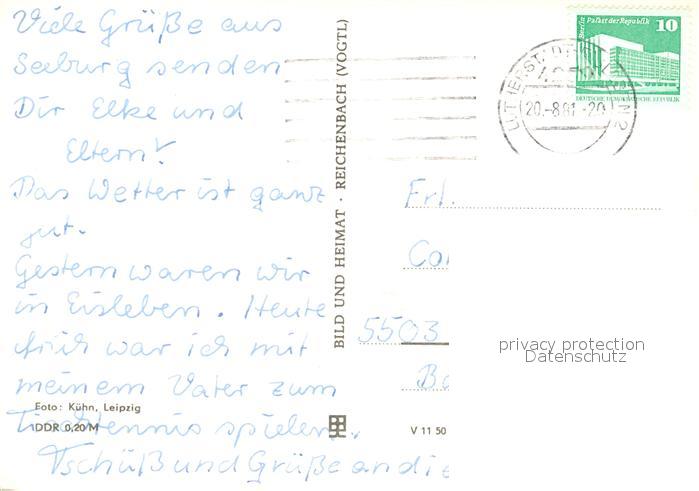 Viele Grüße aus
Seeburg senden
Dir Elke und
Eltern!
Das Wetter ist ganz
gut.
Gestern waren wir
in Eisleben. Heute
früh war ich mit
meinem Vater zum
Tischtennis spielen.
Tschüß und Grüße an die
Foto: Kühn, Leipzig
DDR 0,20 M
BILD UND HEIMAT · REICHENBACH (VOGTL)
V 11 50
Berlin Palast der Republik 10
DEUTSCHE DEMOKRATISCHE REPUBLIK
LUTHERSTADT EISLEBEN 2
20.-8.81.-20
Frl.
Co
5503
B
privacy protection
Datenschutz